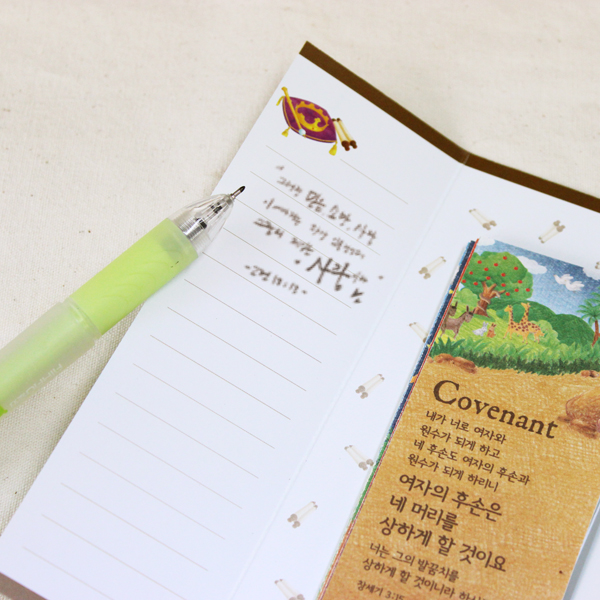 그런즉 믿음, 소망, 사랑,
이 세가지는 항상 있을것인데
그중의 제일은
사랑이라
고전 13:13
Covenant
내가 너로 여자와
원수가 되게 하고
네 후손도 여자의 후손과
원수가 되게 하리니
여자의 후손은
네 머리를
상하게 할 것이요
너는 그의 발꿈치를
상하게 할 것이니라 하시
창세기 3:15